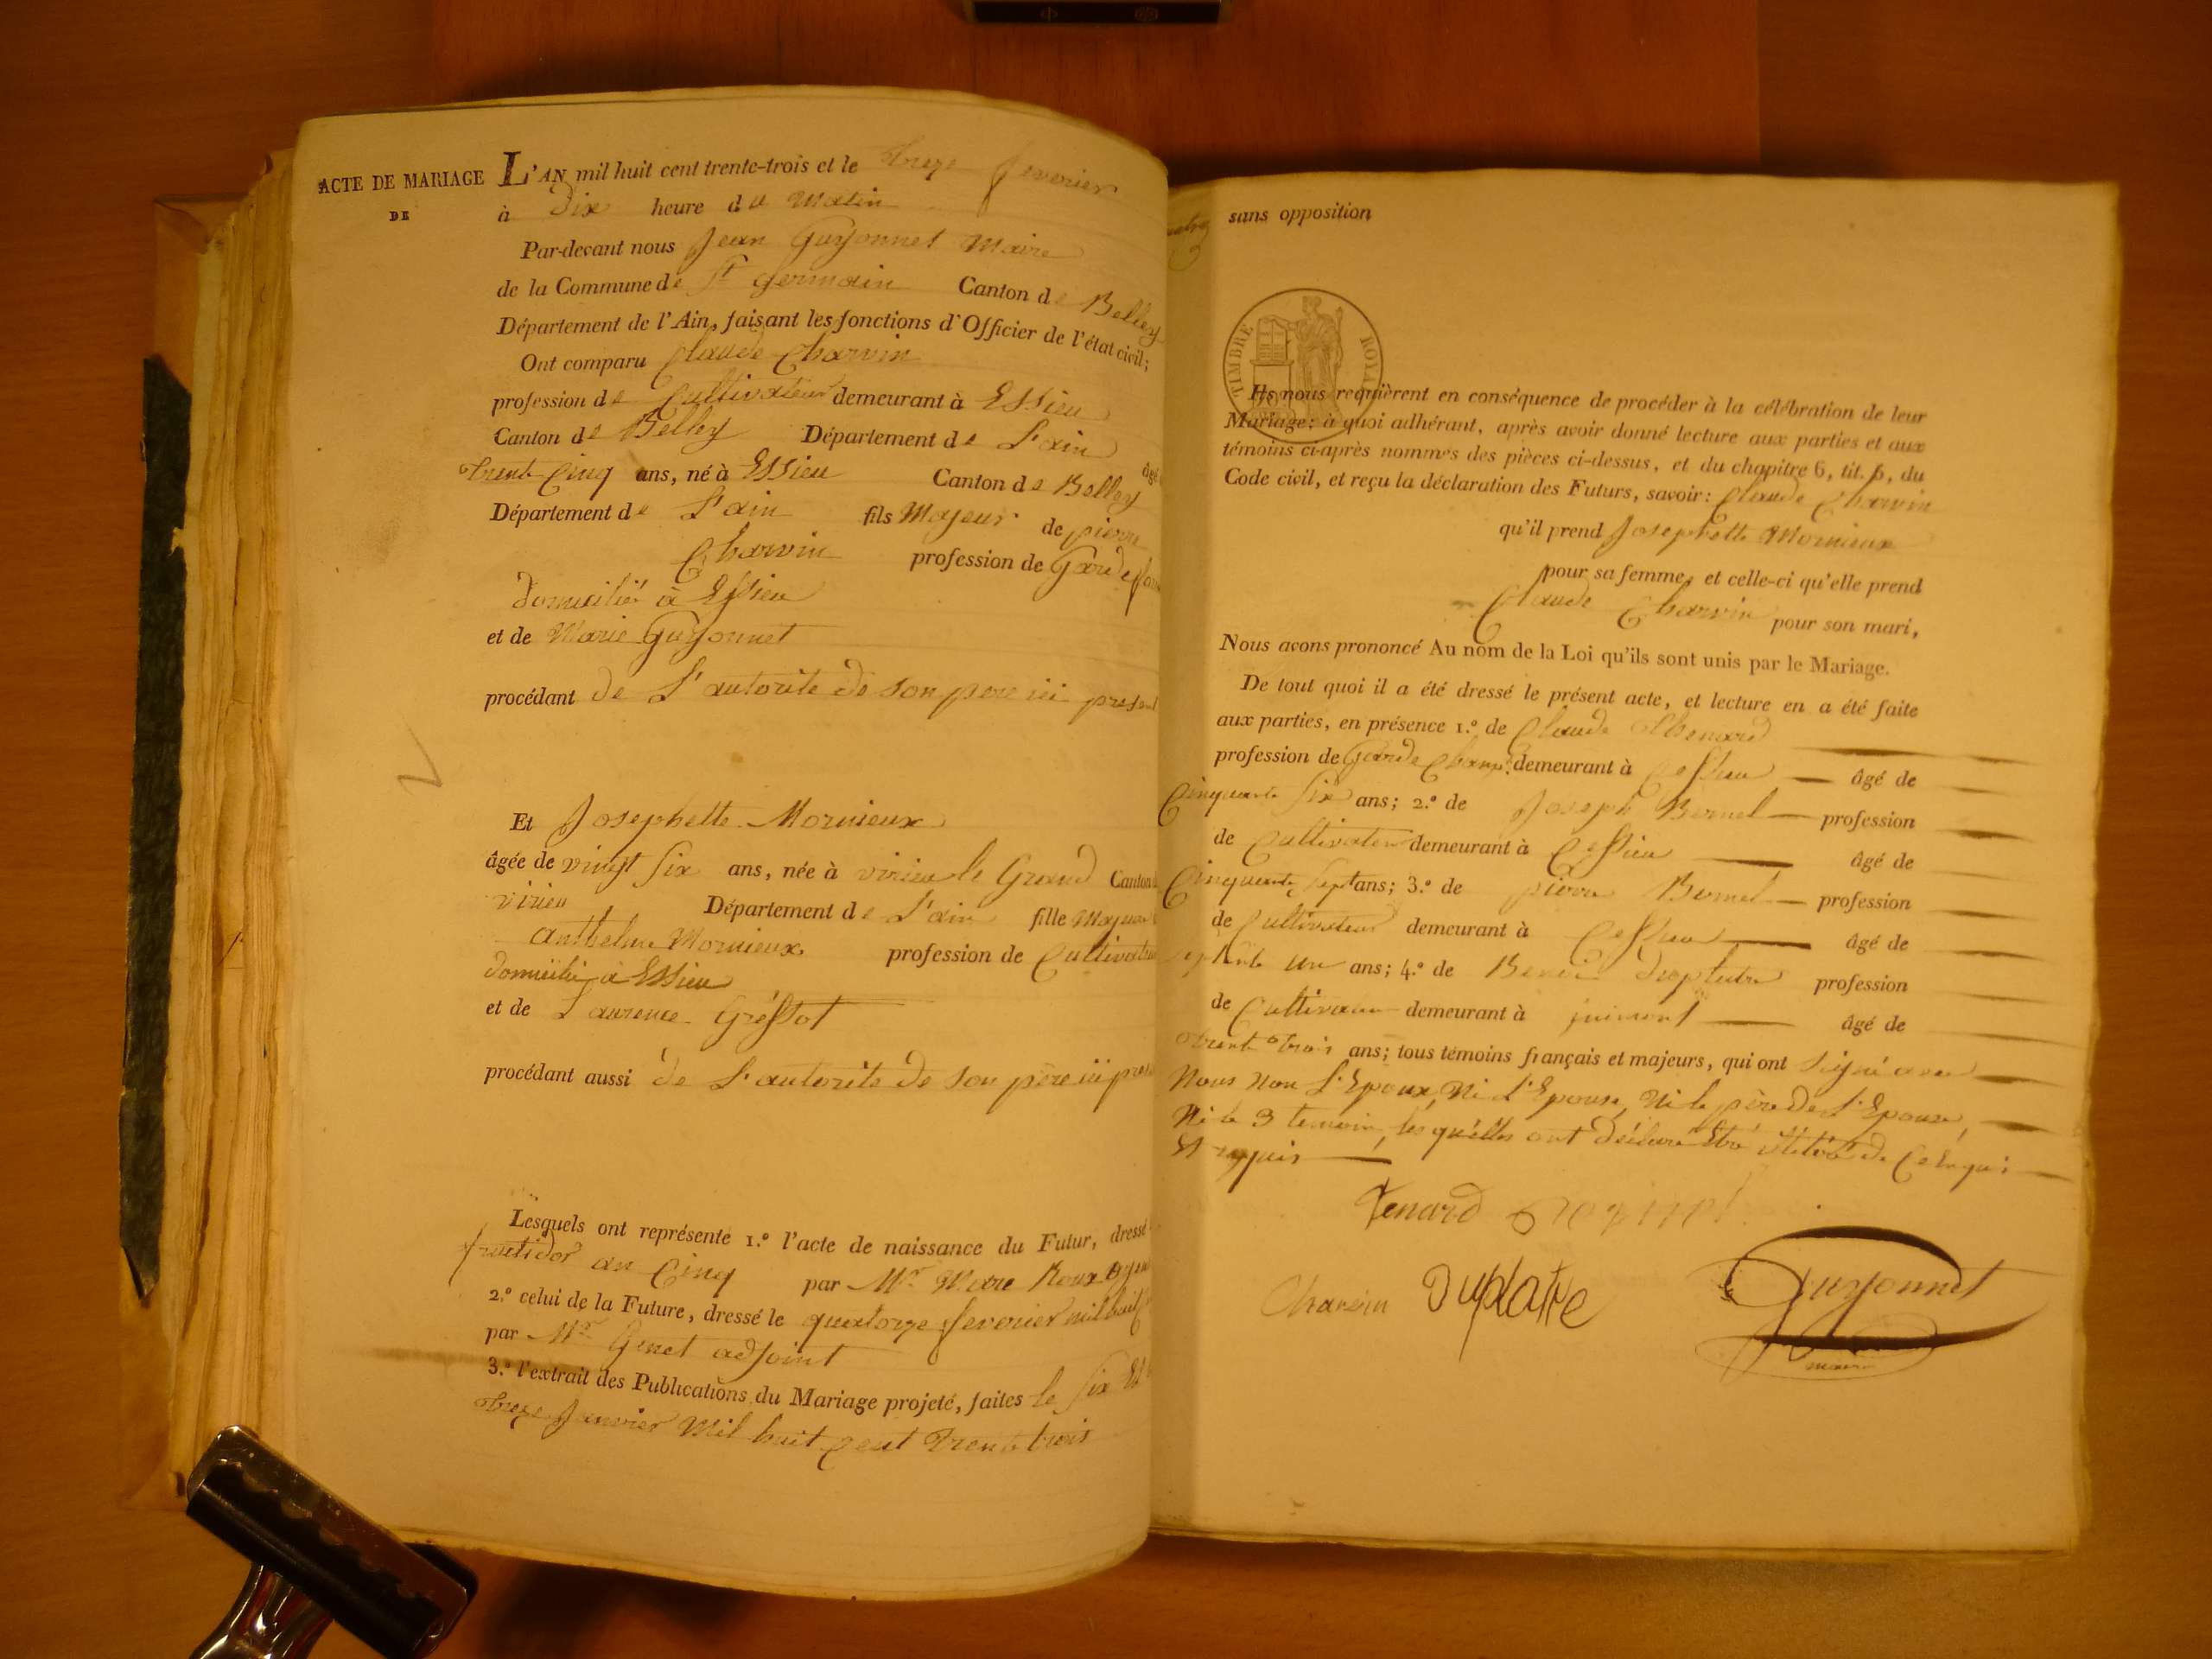 ACTE DE MARIAGE
DE
L'AN mil huit cent trente-trois et le treze feverier
à Dix heure du Matin
Par-devant nous Jean Guyonnet Maire
de la Commune de St germain Canton de Belley
Département de l'Ain, faisant les fonctions d'Officier de l'état civil;
Ont comparu Claude Charvin
profession de Cultivateur demeurant à Essieu
Canton de Belley Département de L'ain âgé
trente Cinq ans, né à Essieu Canton de Belley
Département de L'ain fils Majeur de pierre
Charvin profession de Garde
domicilié à Essieu
et de Marie Guyonnet
procédant de L'autorité de son pere ici present
Et Josephette Mornieux
âgée de vingt six ans, née à virieu le Grand Canton
virieu Département de L'ain fille Majeure
anthelme Mornieux profession de Cultivateur
domicilié à Essieu
et de Laurence Gréssot
procédant aussi de L'autorité de son père ici
Lesquels ont représente 1.º l'acte de naissance du Futur, dressé
fructidor an Cinq par Mr. Roux
2.º celui de la Future, dressé le quatorze feverier mil huit
par Mr Genet adjoint
3.º l'extrait des Publications du Mariage projeté, faites le six Et
treze Janvier Mil huit cent trente trois
sans opposition
TIMBRE ROYAL
Ils nous requièrent en conséquence de procéder à la célébration de leur
Mariage; à quoi adhérant, après avoir donné lecture aux parties et aux
témoins ci-après nommés des pièces ci-dessus, et du chapitre 6, tit. 5, du
Code civil, et reçu la déclaration des Futurs, savoir: Claude Charvin
qu'il prend Josephette Mornieux
pour sa femme, et celle-ci qu'elle prend
Claude Charvin pour son mari,
Nous avons prononcé Au nom de la Loi qu'ils sont unis par le Mariage.
De tout quoi il a été dressé le présent acte, et lecture en a été faite
aux parties, en présence 1.º de Claude Thenard
profession de Garde Champ. demeurant à âgé de
Cinquante six ans; 2.º de Joseph profession
de Cultivateur demeurant à âgé de
Cinquante sept ans; 3.º de pierre profession
de Cultivateur demeurant à âgé de
septante un ans; 4.º de profession
de Cultivateur demeurant à âgé de
trente trois ans; tous témoins français et majeurs, qui ont signé avec
Nous Non L'Epoux, Ni L'Epouse, Ni le père de L'Epouse,
Ni le 3 temoin, les quélles ont déclaré de Ce
Et requis
Tenard
Charvin Duplatre Guyonnet
maire